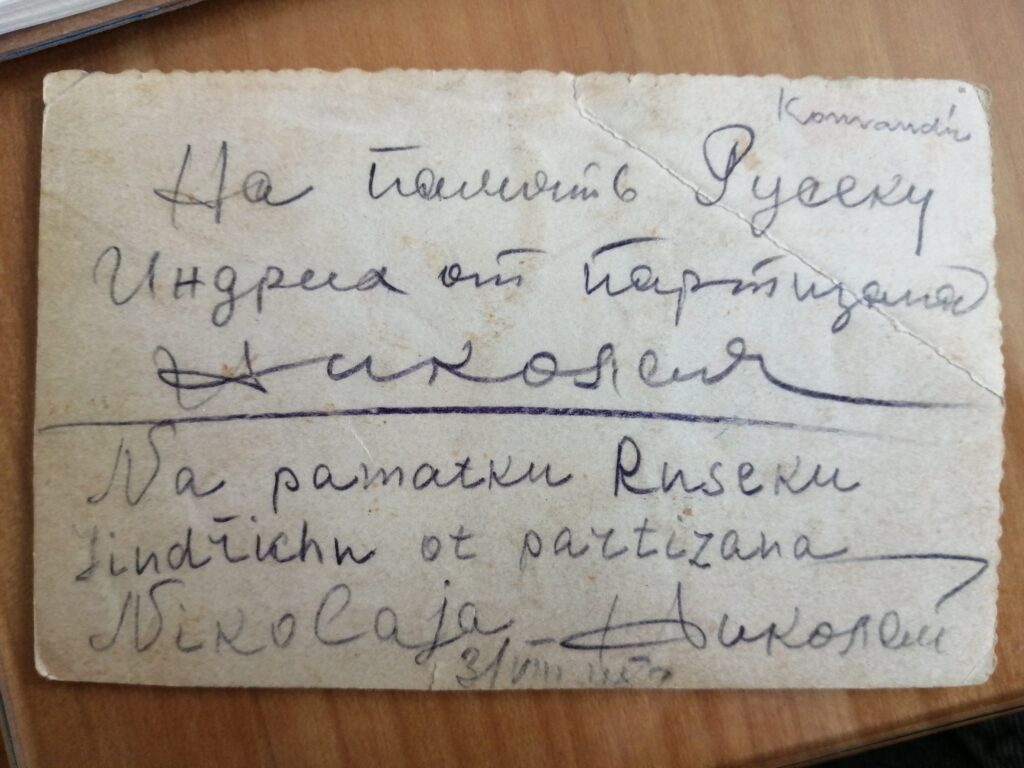 Komandir
На память Русеку
Индриха от партизана
Николая
Na pamatku Ruseku
Jindřichu ot partizana
Nikolaja Николай
31/VIII